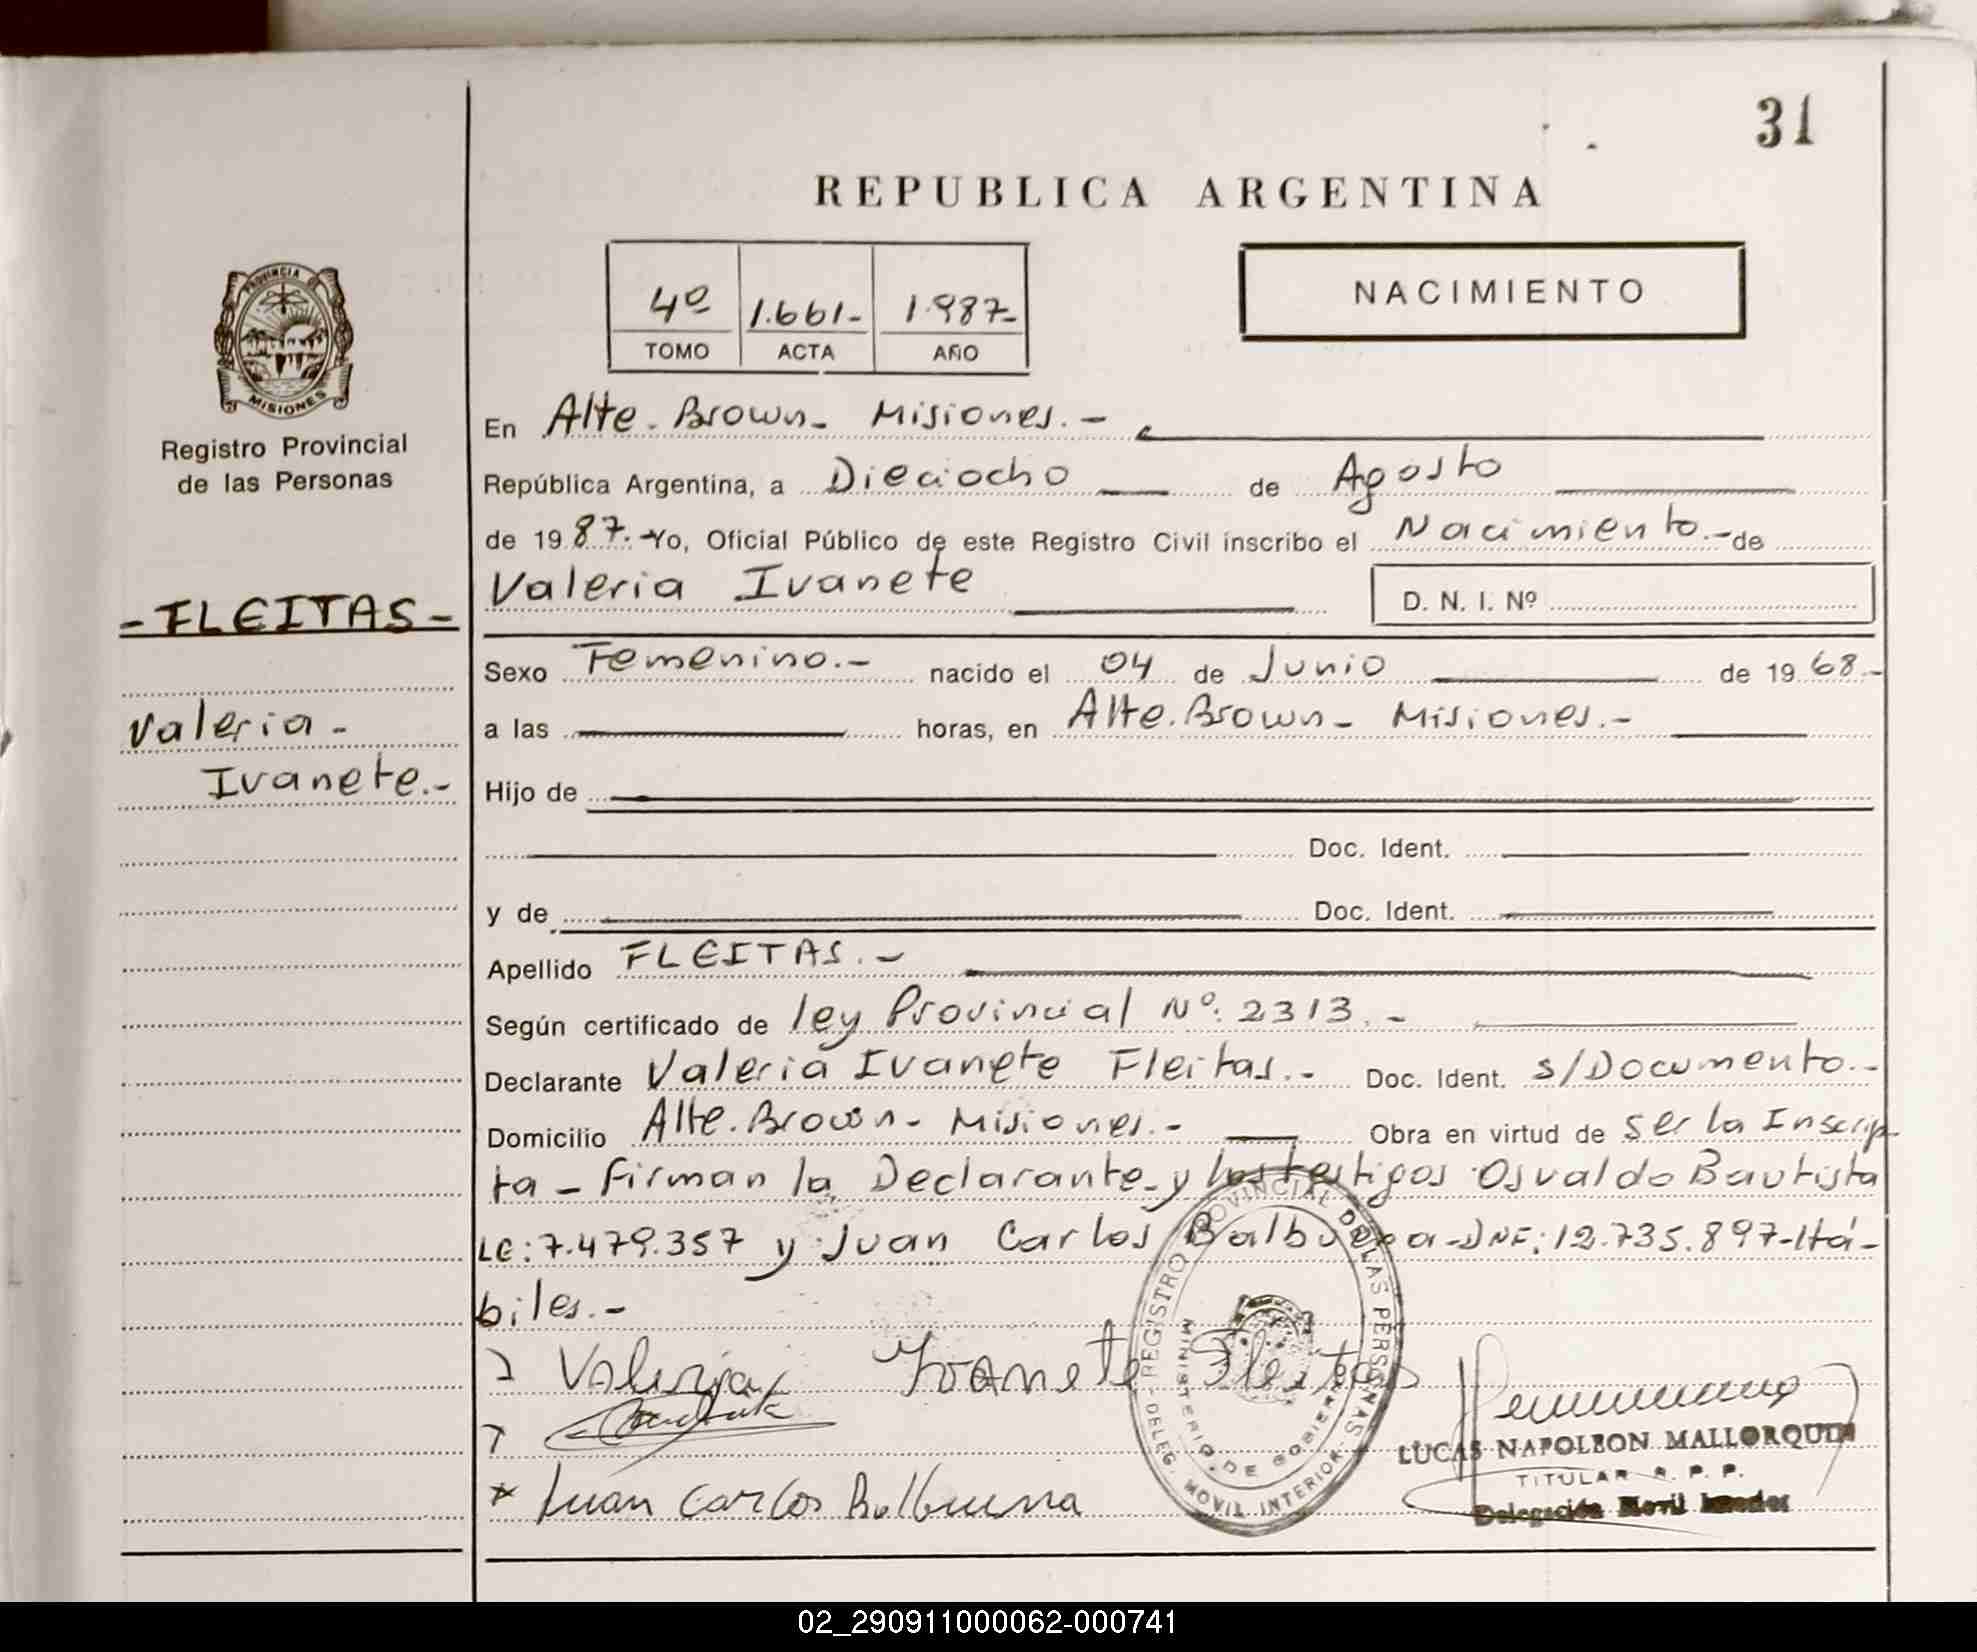 31
REPUBLICA ARGENTINA
4º 1.661- 1.987-
TOMO ACTA AÑO
NACIMIENTO
PROVINCIA
MISIONES
Registro Provincial
de las Personas
- FLEITAS -
Valeria -
Ivanete.-
En Alte. Brown - Misiones. -
República Argentina, a Dieciocho de Agosto
de 19 87.- Yo, Oficial Público de este Registro Civil inscribo el Nacimiento.- de
Valeria Ivanete D. N. I. Nº
Sexo Femenino.- nacido el 04 de Junio de 19 68.-
a las horas, en Alte. Brown - Misiones.-
Hijo de
Doc. Ident.
y de Doc. Ident.
Apellido FLEITAS. -
Según certificado de ley Provincial Nº: 2313. -
Declarante Valeria Ivanete Fleitas.- Doc. Ident. s/Documento.-
Domicilio Alte. Brown - Misiones.- Obra en virtud de ser la Inscrip
ta - Firman la Declarante y los testigos Osvaldo Bautista
LE: 7.479.357 y Juan Carlos Balbuena - DNI: 12.735.897 - Há-
biles.-
Valeria Ivanete Fleitas
Juan Carlos Balbuena
REGISTRO PROVINCIAL DE LAS PERSONAS
MINISTERIO DE GOBIERNO
DELEG. MOVIL INTERIOR
LUCAS NAPOLEON MALLORQUIN
TITULAR R. P. P.
Delegación Movil Interior
02_290911000062-000741